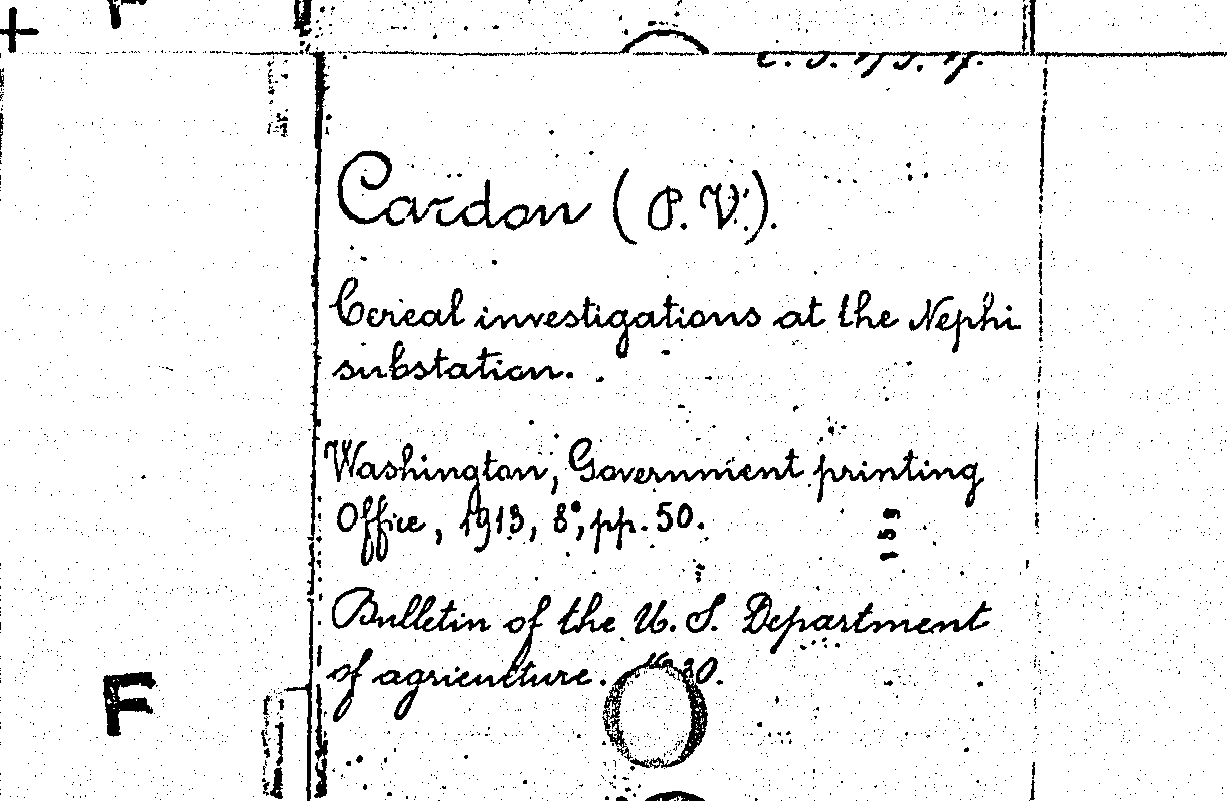 Cardon (P. V.).
Cereal investigations at the Nephi
substation.
Washington, Government printing
Office, 1913, 8°, pp. 50.
159
Bulletin of the U. S. Department
of agriculture. 30.
F